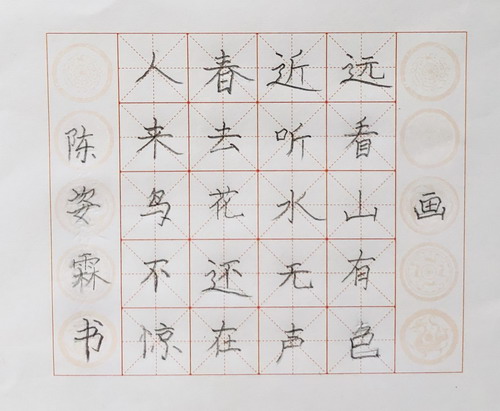 画
远看山有色
近听水无声
春去花还在
人来鸟不惊
陈姿霖书